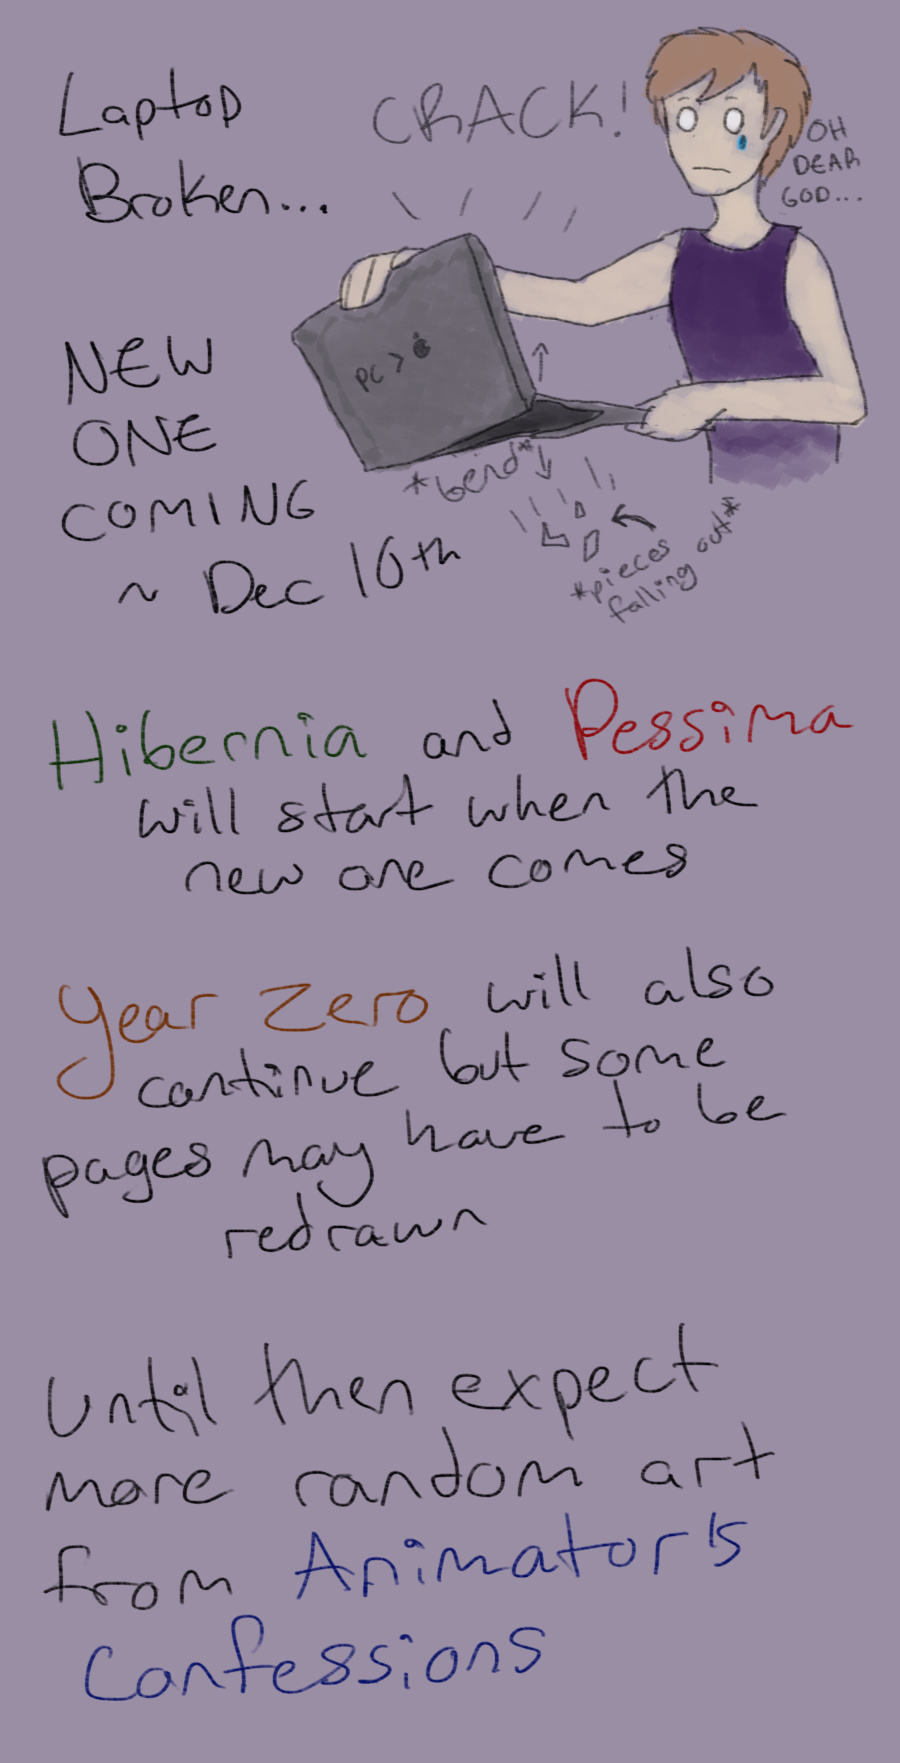 Laptop
Broken...
CRACK!
OH
DEAR
GOD...
PC >
*bend*
*pieces
falling out*
NEW
ONE
COMING
~ Dec 10th
Hibernia and Pessima
will start when the
new one comes
Year Zero will also
continue but some
pages may have to be
redrawn
Until then expect
more random art
from Animator's
Confessions